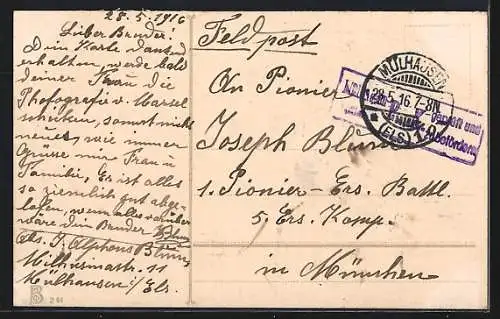 28.5.1916
Lieber Bruder!
Dein Karte dankend
erhalten, werde bald
deiner Frau die
Photografie v. Marsel
schicken, sonst nicht
neues, wie immer
Grüsse mir Frau u
Familie, Es ist alles
so ziemlich gut abge-
lofen, wenn alles vorüber
wäre dein Bruder
Als. J. Alphons Blum,
11
Mülhausen i/ Els.
Feldpost
An Pionier
Joseph Blum
1. Pionier-Ers. Batl.
5. Ers. Komp.
in München
MÜLHAUSEN
28.5.16.7-8N.
(ELS)
und